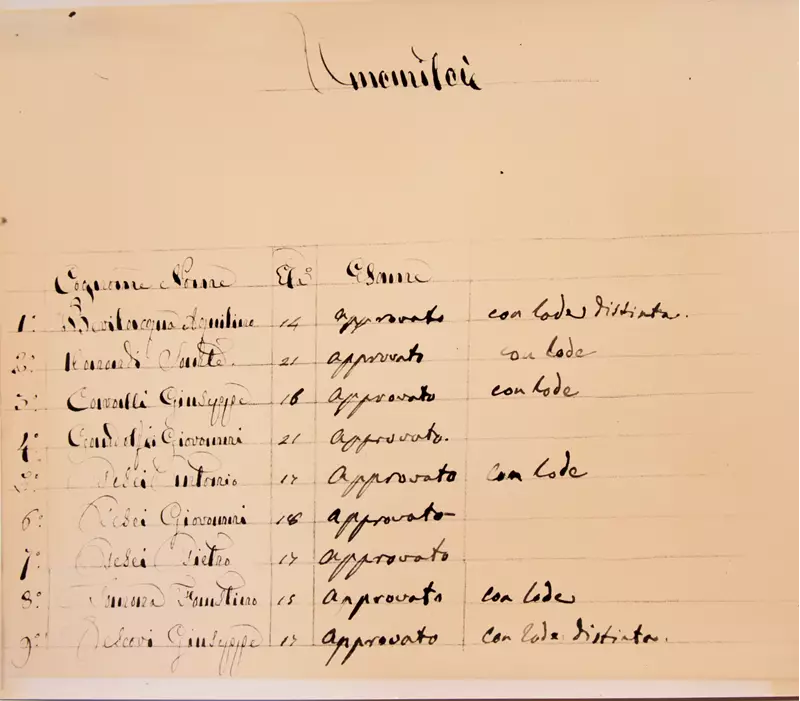 Umanità
Cognome Nome Età Esame
1.° Bevilacqua Aquilino 14 approvato con lode distinta.
2.° Sante. 21 approvato con lode
3.° Cavalli Giuseppe 16 approvato con lode
4.° Gandolfi Giovanni 21 approvato.
5.° Antonio 17 approvato con lode
6.° Giovanni 18 approvato
7.° Pietro 17 approvato
8.° Faustino 15 approvato con lode
9.° Giuseppe 17 approvato con lode distinta.